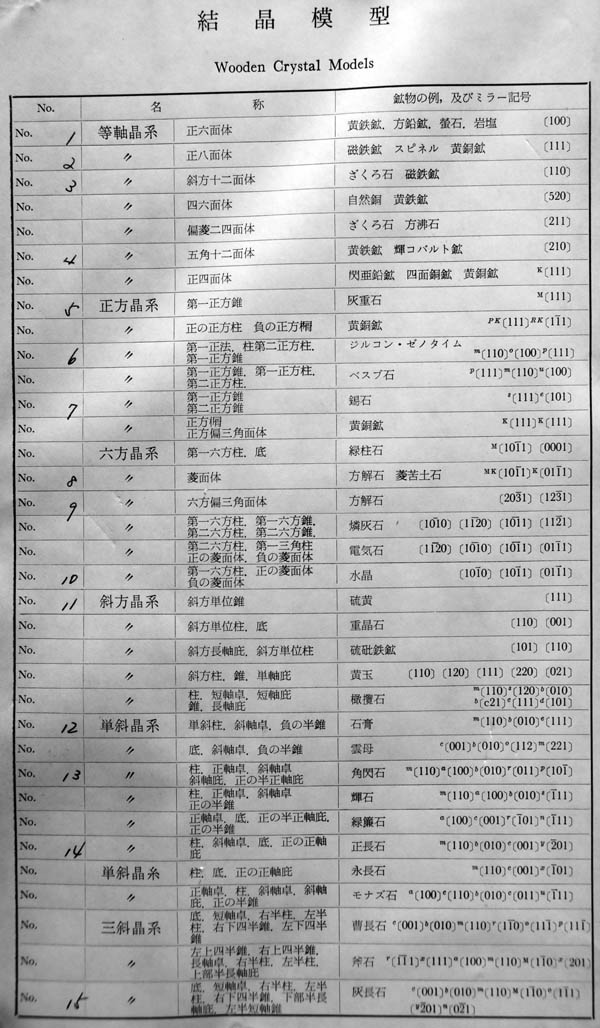 結晶模型
Wooden Crystal Models
No. 名 称 鉱物の例，及びミラー記号
No. 1 等軸晶系 正六面体 黄鉄鉱．方鉛鉱．螢石．岩塩 〔100〕
No. 2 〃 正八面体 磁鉄鉱 スピネル 黄銅鉱 〔111〕
No. 3 〃 斜方十二面体 ざくろ石 磁鉄鉱 〔110〕
No. 〃 四六面体 自然銅 黄鉄鉱 〔520〕
No. 〃 偏菱二四面体 ざくろ石 方沸石 〔211〕
No. 4 〃 五角十二面体 黄鉄鉱 輝コバルト鉱 〔210〕
No. 〃 正四面体 閃亜鉛鉱 四面銅鉱 黄銅鉱 K〔111〕
No. 5 正方晶系 第一正方錐 灰重石 M〔111〕
No. 〃 正の正方柱 負の正方楔 黄銅鉱 PK〔111〕RK〔11̄1〕
No. 6 〃 第一正法．柱第二正方柱．
第一正方錐
ジルコン・ゼノタイム
m〔110〕a〔100〕p〔111〕
No. 〃 第一正方錐．第一正方柱．
第二正方柱．
ベスブ石 p〔111〕m〔110〕u〔100〕
No. 7 〃 第一正方錐
第二正方錐
錫石 s〔111〕e〔101〕
No. 〃 正方楔
正方偏三角面体
黄銅鉱 K〔111〕K〔111〕
No. 六方晶系 第一六方柱．底 緑柱石 M〔101̄1〕〔0001〕
No. 8 〃 菱面体 方解石 菱苦土石 MK〔101̄1〕K〔011̄1〕
No. 9 〃 六方偏三角面体 方解石 〔203̄1〕〔123̄1〕
No. 〃 第一六方柱．第一六方錐．
第二六方柱．第二六方錐．
燐灰石 〔101̄0〕〔112̄0〕〔101̄1〕〔112̄1〕
No. 〃 第二六方柱．第一三角柱
正の菱面体．負の菱面体
電気石 〔112̄0〕〔101̄0〕〔101̄1〕〔011̄1〕
No. 10 〃 第一六方柱．正の菱面体
負の菱面体
水晶 〔101̄0〕〔101̄1〕〔011̄1〕
No. 11 斜方晶系 斜方単位錐 硫黄 〔111〕
No. 〃 斜方単位柱．底 重晶石 〔110〕〔001〕
No. 〃 斜方長軸庇．斜方単位柱 硫砒鉄鉱 〔101〕〔110〕
No. 〃 斜方柱．錐．単軸庇 黄玉 〔110〕〔120〕〔111〕〔220〕〔021〕
No. 〃 柱．短軸卓．短軸庇
錐．長軸庇
橄欖石 m〔110〕s〔120〕b〔010〕
h〔c21〕e〔111〕d〔101〕
No. 12 単斜晶系 単斜柱．斜軸卓．負の半錐 石膏 m〔110〕b〔010〕e〔111〕
No. 〃 底．斜軸卓．負の半錐 雲母 c〔001〕b〔010〕o〔112〕m〔221〕
No. 13 〃 柱．正軸卓．斜軸卓
斜軸庇．正の半正軸庇
角閃石 m〔110〕a〔100〕b〔010〕r〔011〕p〔101̄〕
No. 〃 柱．正軸卓．斜軸卓
正の半錐
輝石 m〔110〕a〔100〕b〔010〕s〔1̄11〕
No. 〃 正軸卓．底．正の半正軸庇．
正の半錐
緑簾石 a〔100〕c〔001〕r〔1̄01〕n〔1̄11〕
No. 14 〃 柱．斜軸卓．底．正の正軸
庇
正長石 m〔110〕b〔010〕c〔001〕y〔2̄01〕
No. 単斜晶糸 柱．底．正の正軸庇 氷長石 m〔110〕c〔001〕x〔1̄01〕
No. 〃 正軸卓．柱．斜軸卓．斜軸
庇．正の半錐
モナズ石 a〔100〕c〔110〕b〔010〕e〔011〕u〔1̄11〕
No. 三斜晶系 底．短軸卓．右半柱．左半
柱．右下四半錐．左下四半
錐
曹長石 c〔001〕b〔010〕m〔110〕〔11̄0〕o〔111̄〕p〔111̄〕
No. 〃 左上四半錐．右上四半錐．
長軸卓．右半柱．左半柱．
上部半長軸庇
斧石 r〔11̄1〕〔111〕a〔100〕m〔110〕M〔11̄0〕〔201〕
No. 15 〃 底．短軸卓．右半柱．左半
柱．右下四半錐．下部半長
軸庇．左半短軸錐
灰長石 c〔001〕b〔010〕m〔110〕M〔11̄0〕〔111〕
y〔2̄01〕n〔02̄1〕